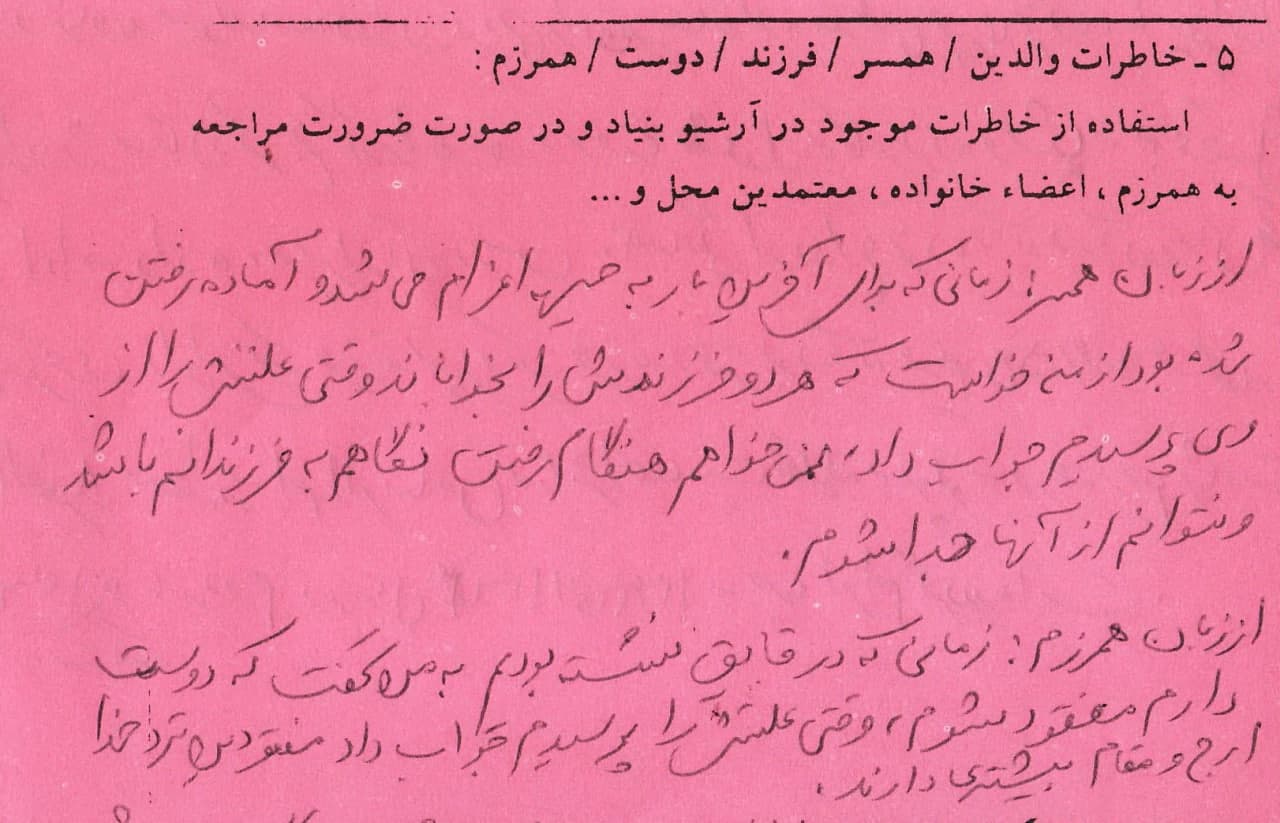 ۵ ـ خاطرات والدین / همسر / فرزند / دوست / همرزم :
استفاده از خاطرات موجود در آرشیو بنیاد و در صورت ضرورت مراجعه
به همرزم ، اعضاء خانواده ، معتمدین محل و ...
از زبان همسر: زمانی که برای آخرین بار به جبهه اعزام می‌شد و آماده رفتن
شده بود از من خواست که هر دو فرزندش را بخوابانند وقتی علتش را از
وی پرسیدم جواب داد، نمی‌خواهم هنگام رفتن نگاهم به فرزندانم باشد
و نتوانم از آنها جدا شوم.
از زبان همرزم: زمانی که در قایق نشسته بودیم به من گفت که دوست
دارم مفقود شوم، وقتی علتش را پرسیدم جواب داد مفقودین نزد خدا
ارج و مقام بیشتری دارند.